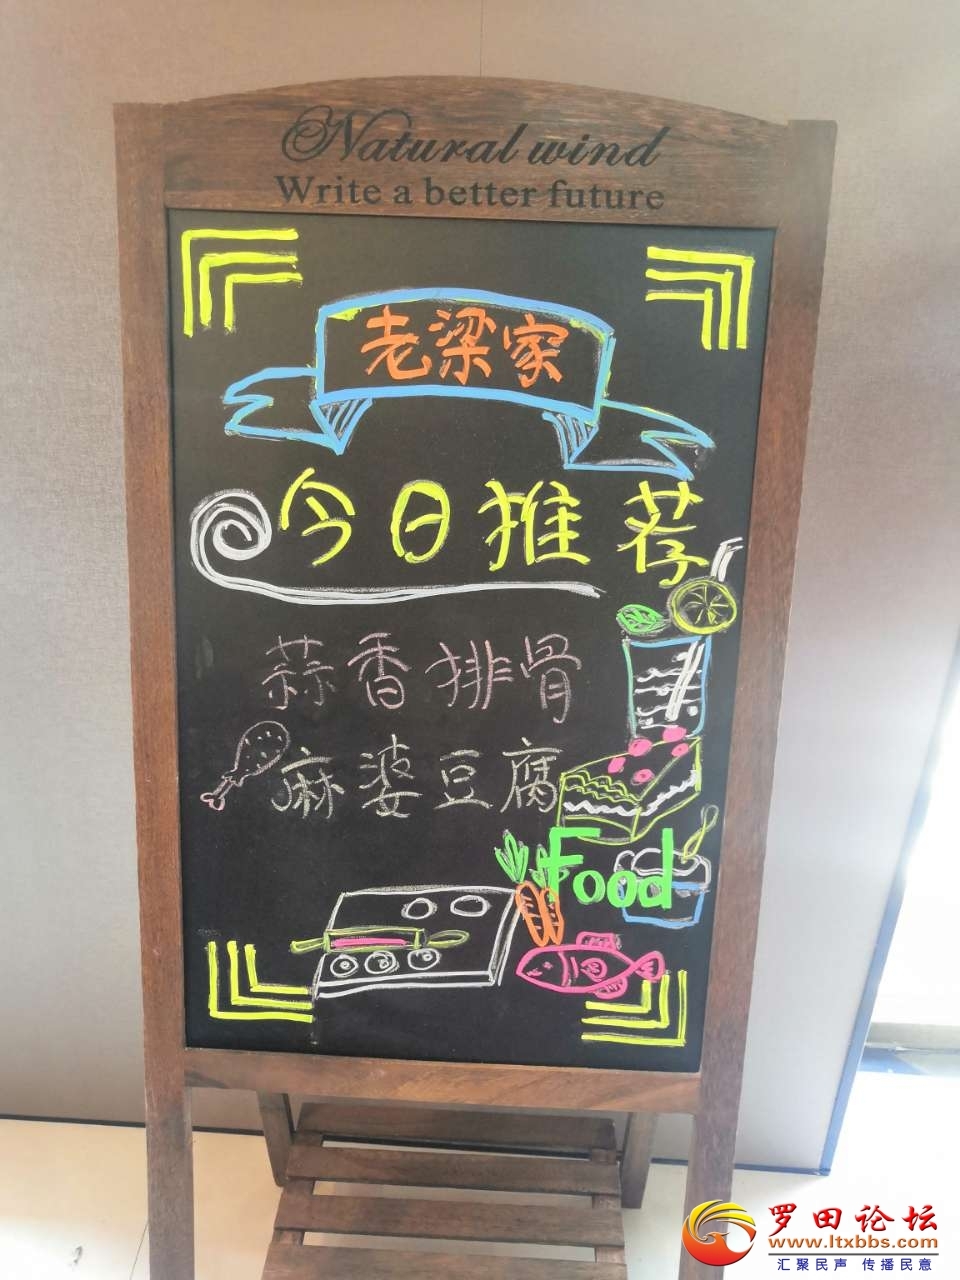 Natural wind
Write a better future
老梁家
今日推荐
蒜香排骨
麻婆豆腐
Food
罗田论坛
www.ltxbbs.com
汇聚民声 传播民意